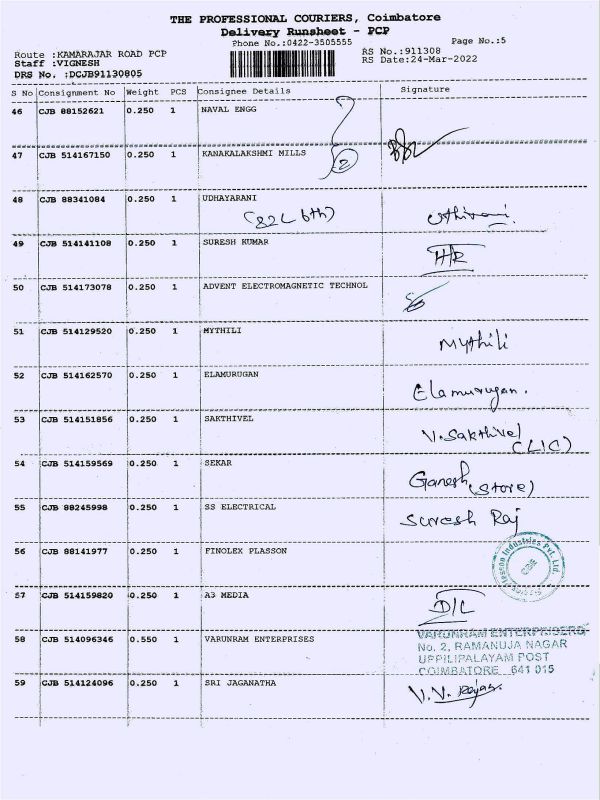 THE PROFESSIONAL COURIERS, Coimbatore
Delivery Runsheet - PCP
Phone No:0422-3505555
Page No.:5
Route :KAMARAJAR ROAD PCP
RS No.:911308
Staff :VIGNESH
RS Date:24-Mar-2022
DRS No. :DCJB91130805
S No Consignment No Weight PCS Consignee Details Signature
46 CJB 88152621 0.250 1 NAVAL ENGG
47 CJB 514167150 0.250 1 KANAKALAKSHMI MILLS 2
48 CJB 88341084 0.250 1 UDHAYARANI
(82L 6th)
49 CJB 514141108 0.250 1 SURESH KUMAR H/R
50 CJB 514173078 0.250 1 ADVENT ELECTROMAGNETIC TECHNOL
51 CJB 514129520 0.250 1 MYTHILI Mythili
52 CJB 514162570 0.250 1 ELAMURUGAN Elamurugan.
53 CJB 514151856 0.250 1 SAKTHIVEL V.Sakthivel
(LIC)
54 CJB 514159569 0.250 1 SEKAR Ganesh (Store)
55 CJB 88245998 0.250 1 SS ELECTRICAL Suresh Raj
56 CJB 88141977 0.250 1 FINOLEX PLASSON
Industries Pvt. Ltd.
57 CJB 514159820 0.250 1 A3 MEDIA D/L
58 CJB 514096346 0.550 1 VARUNRAM ENTERPRISES
VARUNRAM ENTERPRISERS
No. 2, RAMANUJA NAGAR
UPPILIPALAYAM POST
COIMBATORE 641 015
59 CJB 514124096 0.250 1 SRI JAGANATHA